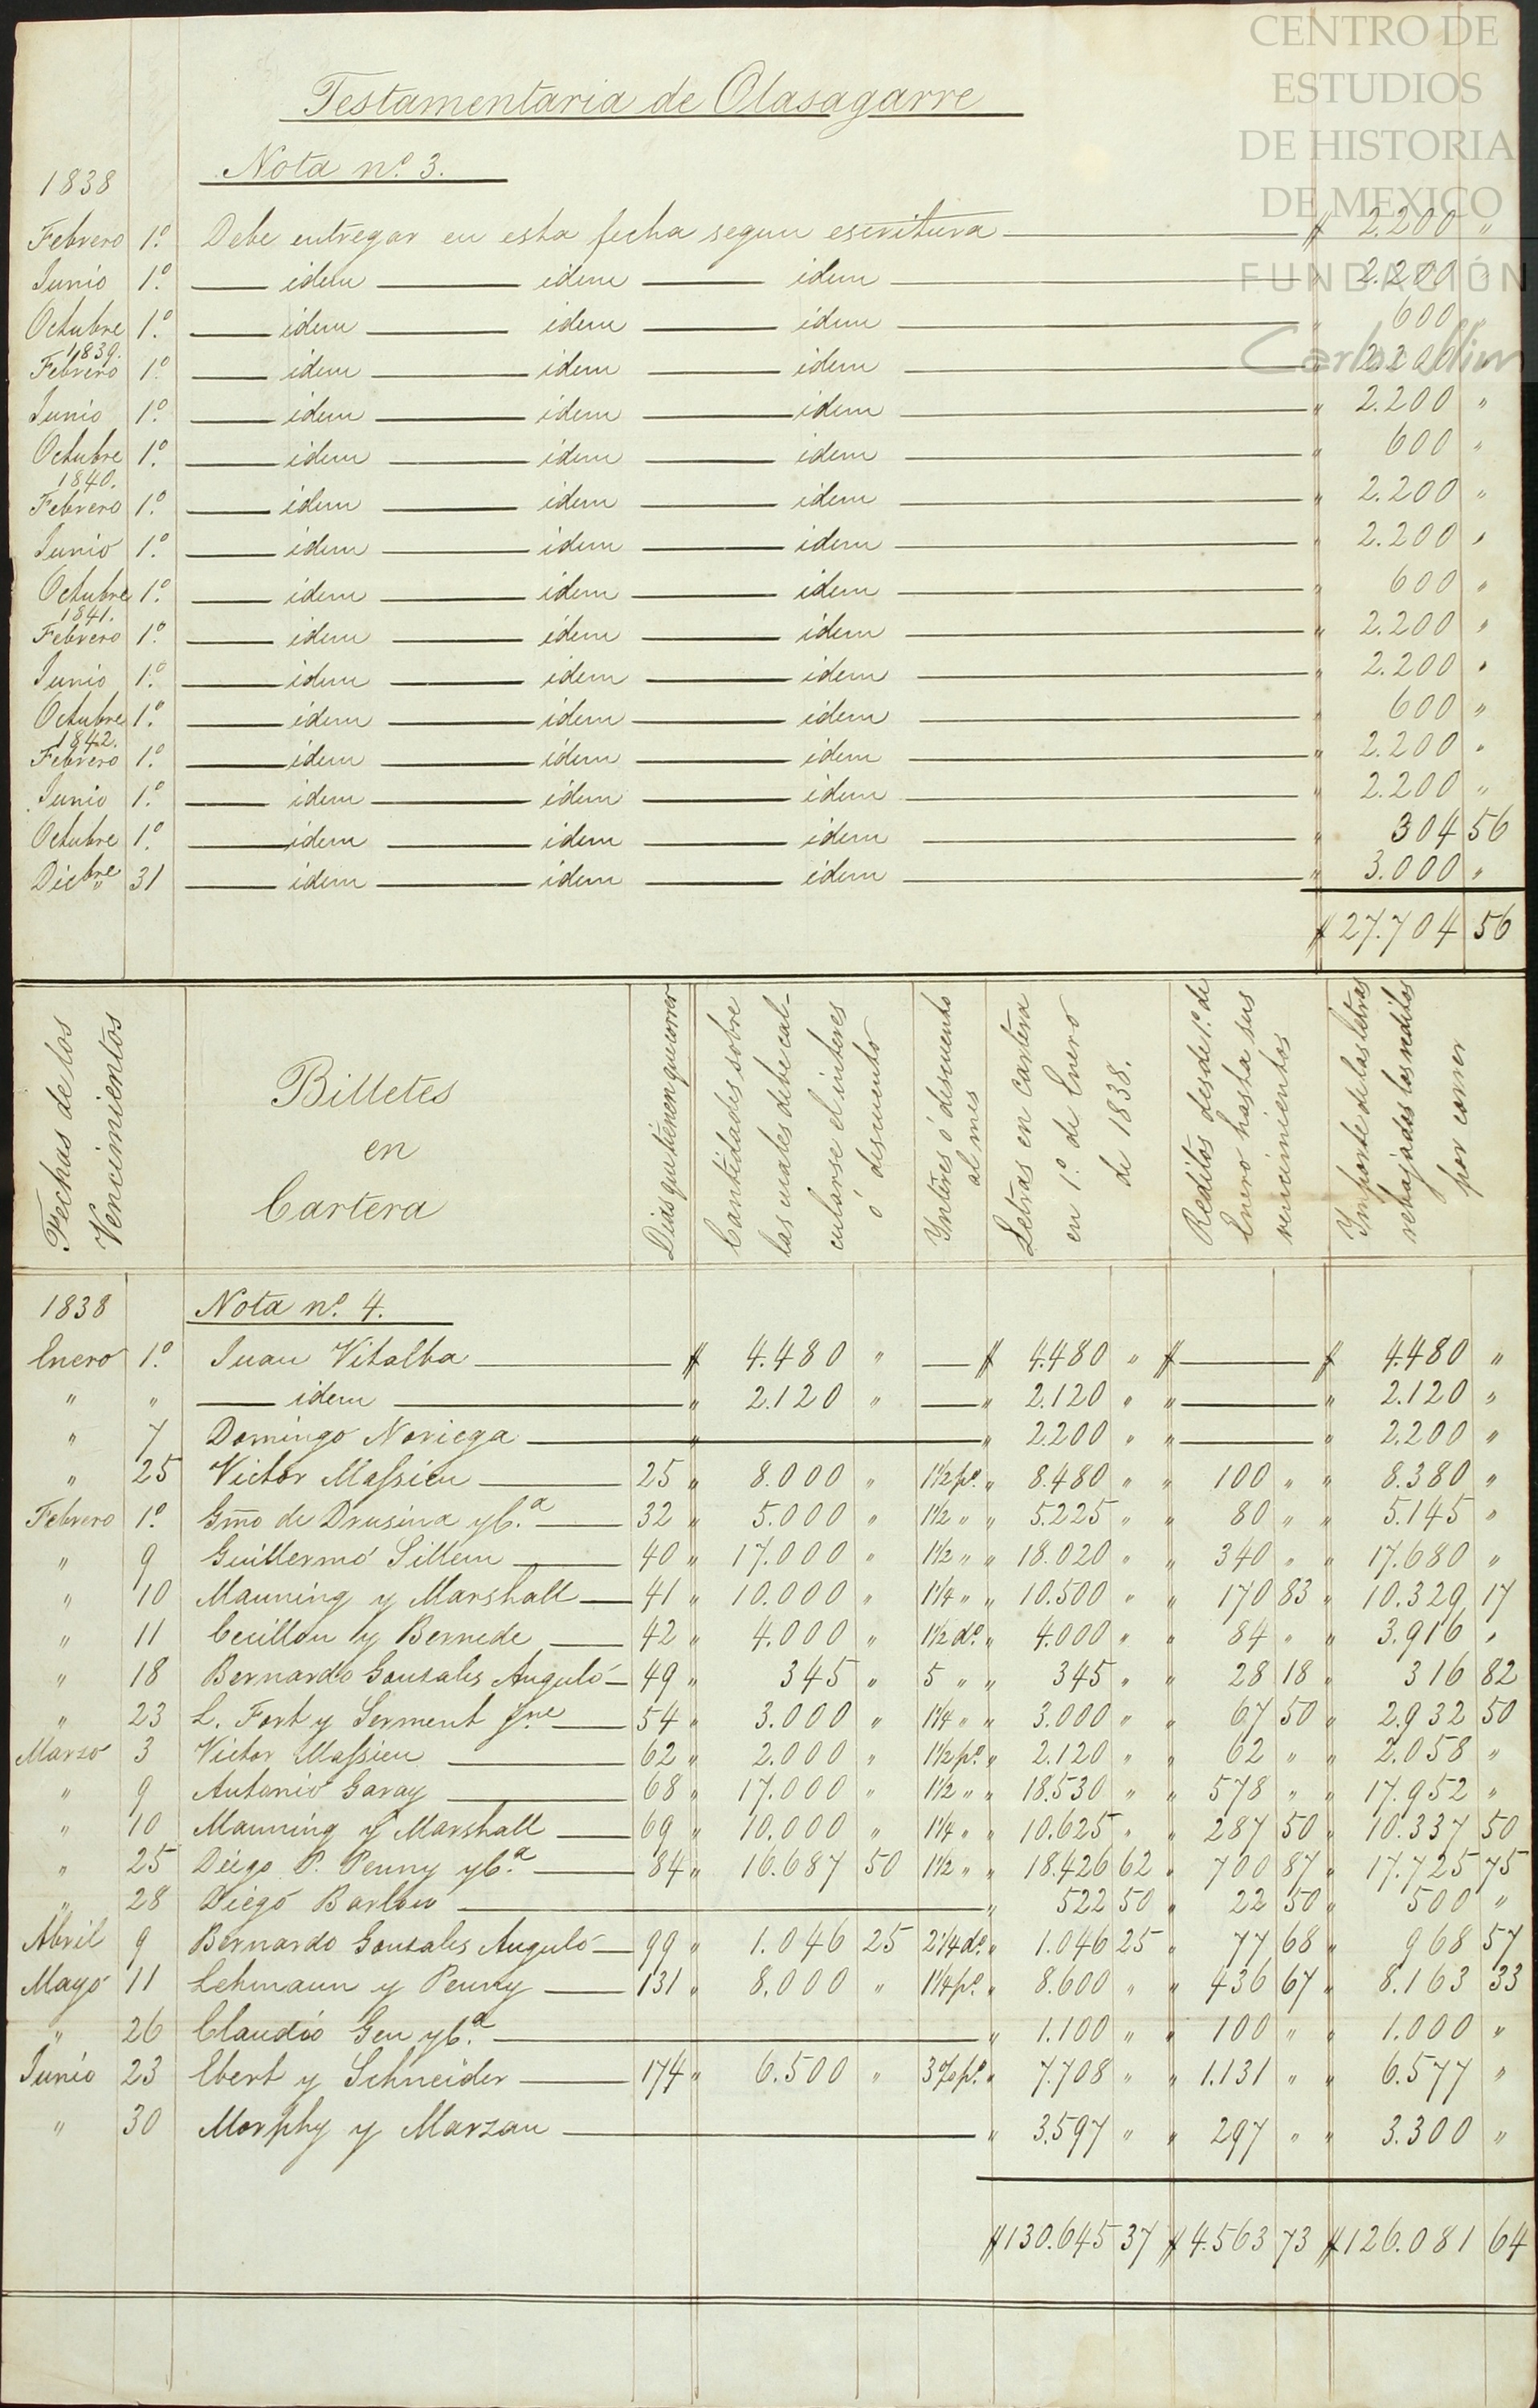 CENTRO DE
ESTUDIOS
DE HISTORIA
DE MEXICO
FUNDACIÓN
Carlos Slim
Testamentaria de Olasagarre
Nota nº 3.
1838
Febrero 1º Debe entregar en esta fecha segun escritura $ 2.200 "
Junio 1º idem idem idem " 2.200 "
Octubre 1º idem idem idem " 600 "
1839.
Febrero 1º idem idem idem " 2.200 "
Junio 1º idem idem idem " 2.200 "
Octubre 1º idem idem idem " 600 "
1840.
Febrero 1º idem idem idem " 2.200 "
Junio 1º idem idem idem " 2.200 "
Octubre 1º idem idem idem " 600 "
1841.
Febrero 1º idem idem idem " 2.200 "
Junio 1º idem idem idem " 2.200 "
Octubre 1º idem idem idem " 600 "
1842.
Febrero 1º idem idem idem " 2.200 "
Junio 1º idem idem idem " 2.200 "
Octubre 1º idem idem idem " 304 56
Dicbre 31 idem idem idem " 3.000 "
$ 27.704 56
Fechas de los
Vencimientos
Billetes
en
Cartera
Dias que tienen que correr
Cantidades sobre
las cuales debe cal-
cularse el interes
ó descuento
Ynterés ó descuento
al mes
Letras en cartera
en 1º de Enero
de 1838.
Reditos desde 1º de
Enero hasta sus
vencimientos
Ymporte de las letras
rebajados los reditos
por correr
1838 Nota nº 4.
Enero 1º Juan Vitalba $ 4.480 " $ 4.480 " $ $ 4.480 "
" " idem " 2.120 " " 2.120 " " " 2.120 "
" 7 Domingo Noriega " " 2.200 " " " 2.200 "
" 25 Victor Massieu 25 " 8.000 " 1½ pº " 8.480 " " 100 " " 8.380 "
Febrero 1º Gmo de Drusina y Cª 32 " 5.000 " 1½ " " 5.225 " " 80 " " 5.145 "
" 9 Guillermo Sillem 40 " 17.000 " 1½ " " 18.020 " " 340 " " 17.680 "
" 10 Manning y Marshall 41 " 10.000 " 1¼ " " 10.500 " " 170 83 " 10.329 17
" 11 Ceuillon y Bernede 42 " 4.000 " 1½ dº " 4.000 " " 84 " " 3.916 "
" 18 Bernardo Gonzales Angulo 49 " 345 " 5 " " 345 " " 28 18 " 316 82
" 23 L. Fort y Serment Jne 54 " 3.000 " 1¼ " " 3.000 " " 67 50 " 2.932 50
Marzo 3 Victor Massieu 62 " 2.000 " 1½ pº " 2.120 " " 62 " " 2.058 "
" 9 Antonio Garay 68 " 17.000 " 1½ " " 18.530 " " 578 " " 17.952 "
" 10 Manning y Marshall 69 " 10.000 " 1¼ " " 10.625 " " 287 50 " 10.337 50
" 25 Diego P. Penny y Cª 84 " 16.687 50 1½ " " 18.426 62 " 700 87 " 17.725 75
" 28 Diego Barlow " 522 50 " 22 50 " 500 "
Abril 9 Bernardo Gonzales Angulo 99 " 1.046 25 2¼ dº " 1.046 25 " 77 68 " 968 57
Mayo 11 Lehmann y Penny 131 " 8.000 " 1¼ pº " 8.600 " " 436 67 " 8.163 33
" 26 Claudio Gen y Cª " 1.100 " " 100 " " 1.000 "
Junio 23 Ebert y Schneider 174 " 6.500 " 3 % pº " 7.708 " " 1.131 " " 6.577 "
" 30 Morphy y Marzan " 3.597 " " 297 " " 3.300 "
$ 130.645 37 $ 4.563 73 $ 126.081 64